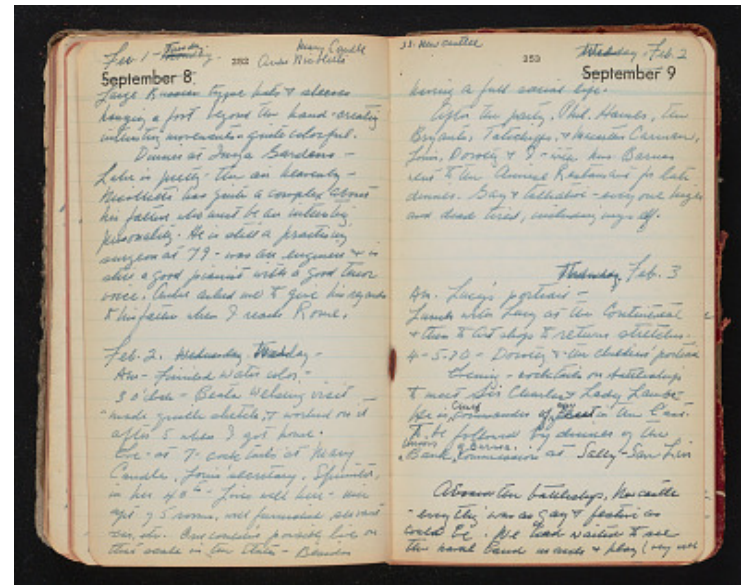 Feb. 1 - Tuesday
Mary Candle
282 Andre Nicoletti
September 8
Large Russian type hats & sleeves
hanging a foot beyond the hand - creating
interesting movements - quite colorful.
Dinner at Inya Gardens -
Lake is pretty - the air heavenly -
Nicoletti has quite a complex about
his father who must be an interesting
personality. He is still a practising
surgeon at 79 - was an engineer & is
still a good pianist with a good tenor
voice. Andre asked me to give his regards
to his father when I reach Rome.
Feb. 2. Wednesday -
Am - Finished water color -
3 o'clock - Beata Welsing visit
made sketch, & worked on it
after 5 when I got home.
Eve - at 7 - cocktails at Mary
Candle, secretary, Spinster,
in her 40's - lives well here - nice
apt of 5 rooms, well furnished, servant
car, etc. One couldn't possibly live on
this scale in the States - Besides
S.S. Newcastle
253 Wednesday, Feb. 2
September 9
having a full social life.
After the party, Phil. Hawes, the
Bryants, & Carman,
Dorothy & I - Mrs. Barnes
went to the Restaurant for late
dinner. Gay & talkative - everyone high
and dead tired, including myself.
Thursday, Feb. 3
Am. Lucy's portrait -
Lunch with Lucy at the Continental
& then to Art shop to return stretcher -
4-5-30 - Dorothy & the children's portrait
Evening - cocktails on battleship
to meet Sir Charles & Lady Lambe
He is Commander of in the East.
Chief
To be followed by dinner of the
Union of Burma
Bank Commission at Sally-San Lin
Aboard the battleship, Newcastle
- everything was as gay & festive as
could be. We had waited to see
the naval band march & play (very well